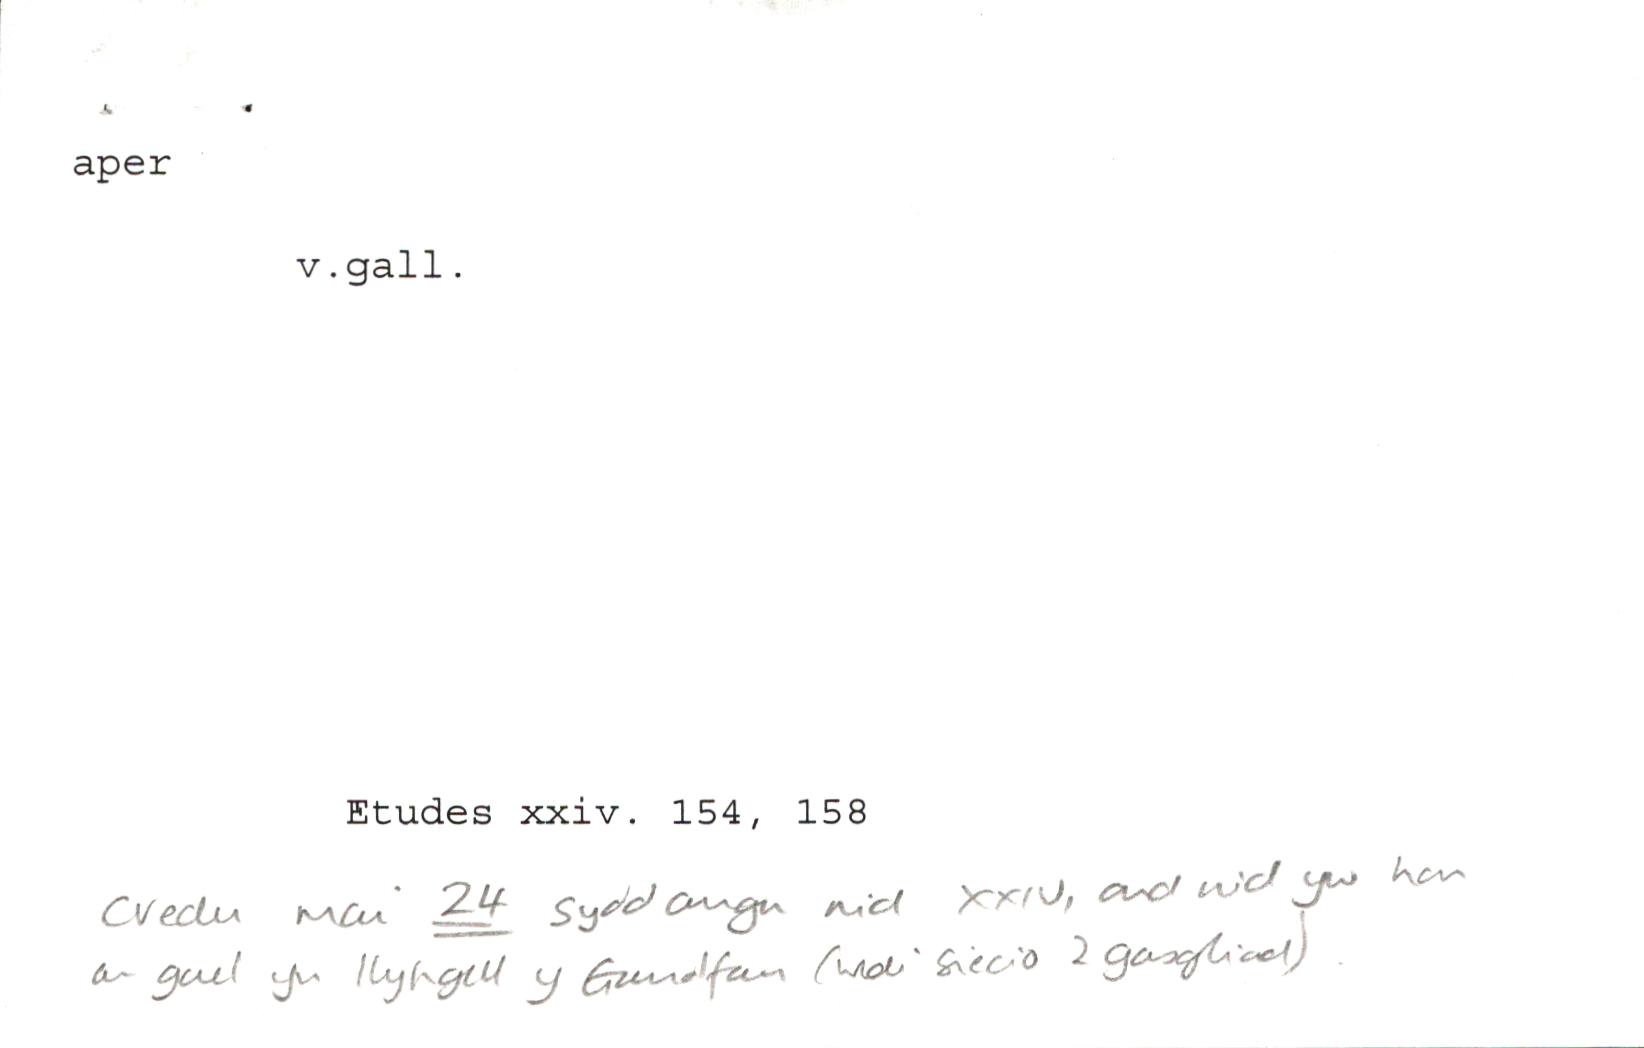 aper
v.gall.
Etudes xxiv. 154, 158
Credu mai 24 sydd angen nid XXIV, ond nid yw hon
ar gael yn llyfrgell y (wedi siecio 2 gasgliad).